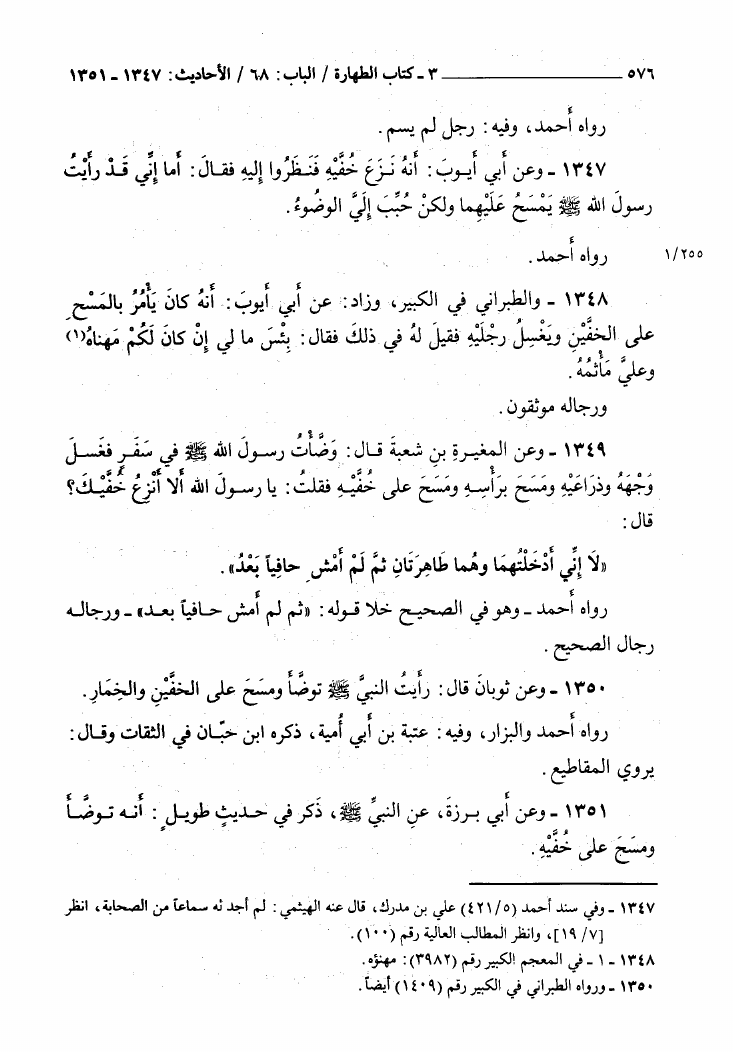 ٥٧٦ ــــــــــــــــــــ ٣ ـ كتاب الطهارة / الباب: ٦٨ / الأحاديث: ١٣٤٧ ـ ١٣٥١
رواه أحمد، وفيه: رجل لم يسم.
١٣٤٧ ـ وعن أبي أيوبَ: أَنهُ نَزَعَ خُفَّيْهِ فَنَظَرُوا إليهِ فقالَ: أَما إنِّي قَدْ رأَيْتُ
رسولَ الله ﷺ يَمْسَحُ عَلَيْهِما ولكنْ حُبِّبَ إلَيَّ الوضُوءُ.
رواه أحمد.
١/٢٥٥
١٣٤٨ ـ والطبراني في الكبير، وزاد: عن أبي أيوبَ: أَنهُ كانَ يَأْمُرُ بالمَسْحِ
على الخفَّيْنِ ويَغْسِلُ رِجْلَيْهِ فقيلَ لهُ في ذلكَ فقال: بِئْسَ ما لي إنْ كانَ لَكُمْ مَهناهُ(١)
وعليَّ مَأْثمُهُ.
ورجاله موثقون.
١٣٤٩ ـ وعن المغيرةِ بنِ شعبةَ قال: وَضَّأْتُ رسولَ الله ﷺ في سَفَرٍ فغَسلَ
وَجْهَهُ وذراعَيْهِ ومَسَحَ برَأْسِهِ ومَسَحَ على خُفَّيْهِ فقلتُ: يا رسولَ الله أَلا أَنْزِعُ خُفَّيْكَ؟
قال:
«لَا إنِّي أَدْخَلْتُهُمَا وهُما طَاهِرَتَانِ ثمَّ لَمْ أَمْشِ حافِياً بَعْدُ».
رواه أحمد ـ وهو في الصحيح خلا قوله: «ثم لم أمش حافياً بعد» ـ ورجاله
رجال الصحيح.
١٣٥٠ ـ وعن ثوبانَ قال: رأَيتُ النبيَّ ﷺ توضَّأَ ومسَحَ على الخفَّيْنِ والخِمَارِ.
رواه أحمد والبزار، وفيه: عتبة بن أبي أُمية، ذكره ابن حبّان في الثقات وقال:
يروي المقاطيع.
١٣٥١ ـ وعن أبي برزةَ، عنِ النبيِّ ﷺ، ذكر في حديثٍ طويلٍ: أَنه توضَّأَ
ومسَحَ على خُفَّيْهِ.
١٣٤٧ ـ وفي سند أحمد (٤٢١/٥) علي بن مدرك، قال عنه الهيثمي: لم أجد له سماعاً من الصحابة، انظر
[١٩/٧]، وانظر المطالب العالية رقم (١٠٠).
١٣٤٨ ـ ١ ـ في المعجم الكبير رقم (٣٩٨٢): مهنؤه.
١٣٥٠ ـ ورواه الطبراني في الكبير رقم (١٤٠٩) أيضاً.